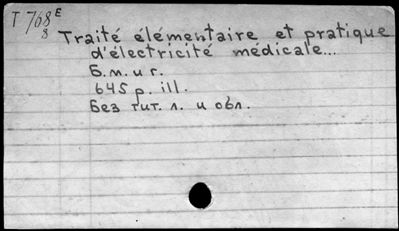 T 768 E
8
Traité élémentaire et pratique
d'électricité médicale...
Б.м. и г.
645 p. ill.
Без тит. л. и обл.